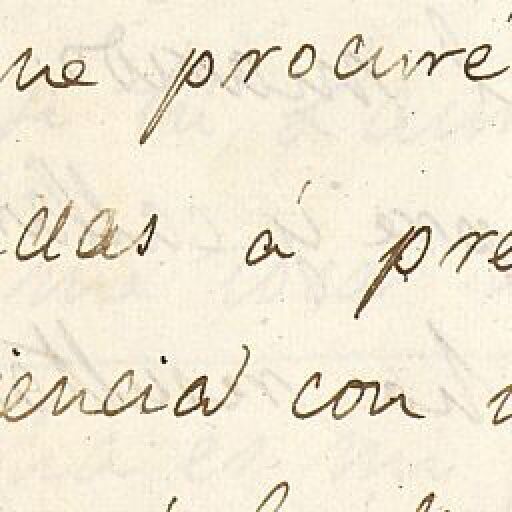 ue procuré
das á pre
iencia con